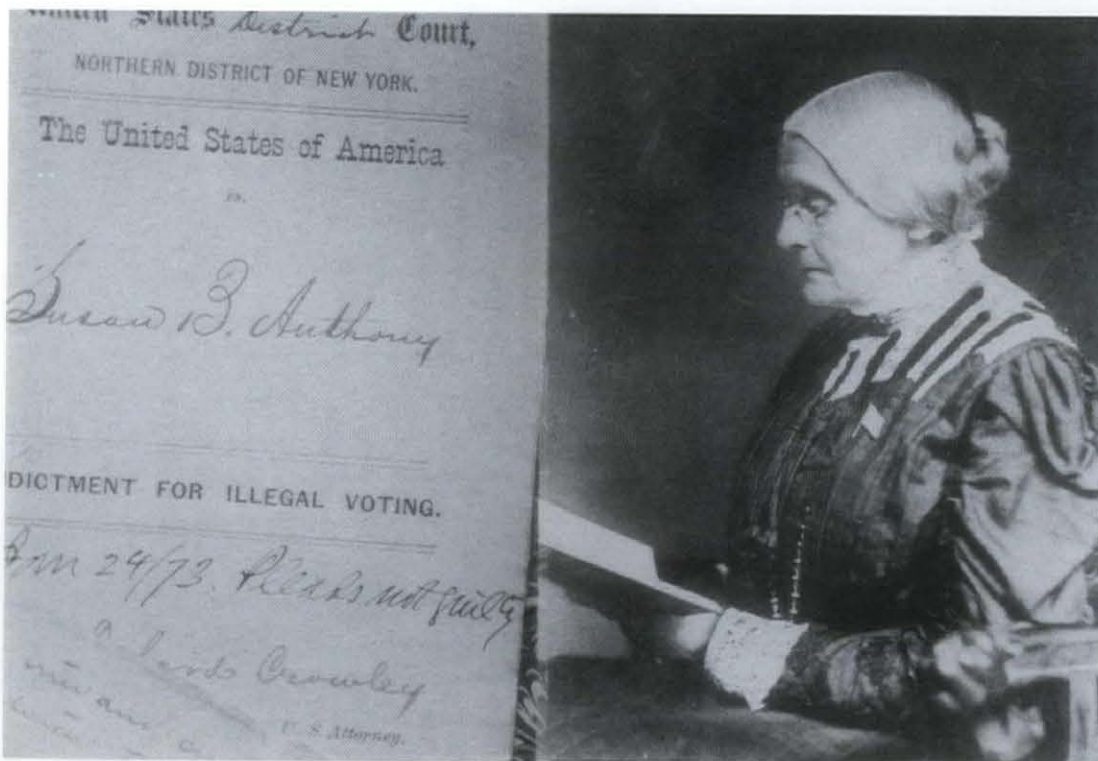 United States District Court,
NORTHERN DISTRICT OF NEW YORK.
The United States of America
vs.
Susan B. Anthony
DICTMENT FOR ILLEGAL VOTING.
24/73. Pleads not guilty
Crowley
U. S. Attorney.